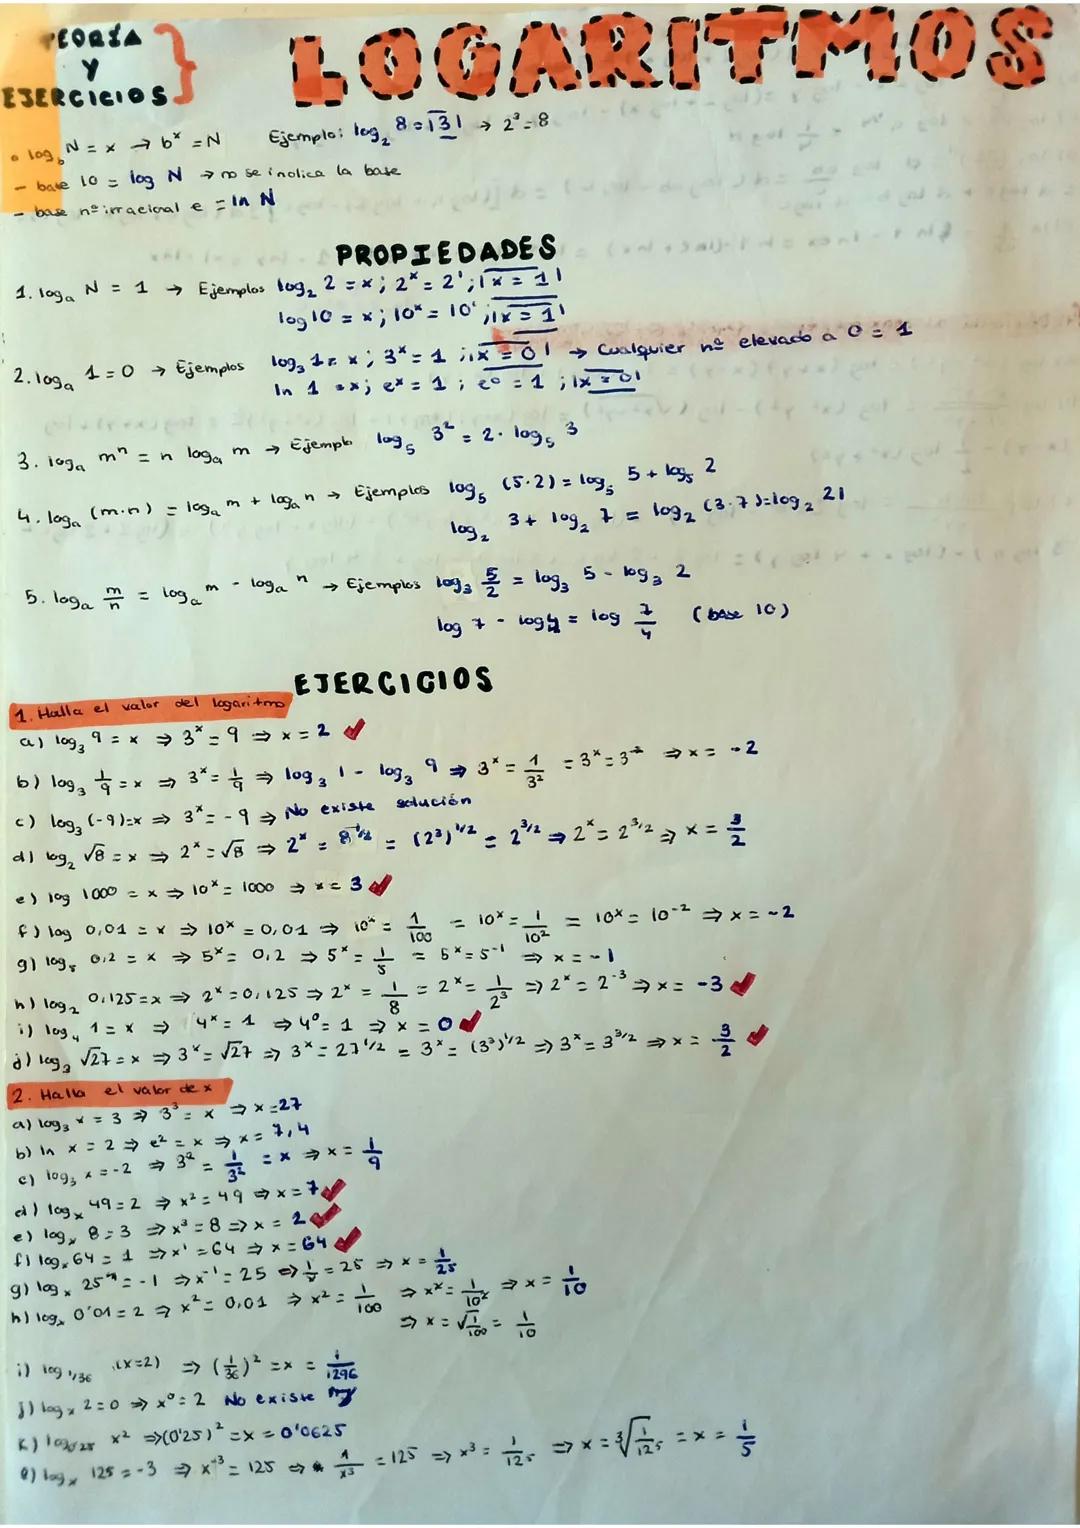 TEORÍA
Y
EJERCICIOS }
LOGARITMOS
• log_b N = x → b^x = N Ejemplo: log_2 8 = |3| → 2^3 = 8
- base 10 = log N → no se indica la base
- base nº irracional e = ln N
PROPIEDADES
1. log_a N = 1 → Ejemplos log_2 2 = x; 2^x = 2^1; |x = 1|
log 10 = x; 10^x = 10^1; |x = 1|
2. log_a 1 = 0 → Ejemplos log_3 1 = x; 3^x = 1; |x = 0| → Cualquier nº elevado a 0 = 1
ln 1 = x; e^x = 1; e^0 = 1; |x = 0|
3. log_a m^n = n log_a m → Ejemplo log_5 3^2 = 2 · log_5 3
4. log_a (m·n) = log_a m + log_a n → Ejemplos log_5 (5·2) = log_5 5 + log_5 2
log_2 3 + log_2 7 = log_2 (3·7) = log_2 21
5. log_a m/n = log_a m - log_a n → Ejemplos log_3 5/2 = log_3 5 - log_3 2
log 7 - log 4 = log 7/4 (base 10)
EJERCICIOS
1. Halla el valor del logaritmo
a) log_3 9 = x ⇒ 3^x = 9 ⇒ x = 2 ✓
b) log_3 1/9 = x ⇒ 3^x = 1/9 ⇒ log_3 1 - log_3 9 ⇒ 3^x = 1/3^2 = 3^x = 3^-2 ⇒ x = -2
c) log_3 (-9) = x ⇒ 3^x = -9 ⇒ No existe solución
d) log_2 √8 = x ⇒ 2^x = √8 ⇒ 2^x = 8^1/2 = (2^3)^1/2 = 2^3/2 ⇒ 2^x = 2^3/2 ⇒ x = 3/2
e) log 1000 = x ⇒ 10^x = 1000 ⇒ x = 3 ✓
f) log 0,01 = x ⇒ 10^x = 0,01 ⇒ 10^x = 1/100 = 10^x = 1/10^2 = 10^x = 10^-2 ⇒ x = -2
g) log_5 0,2 = x ⇒ 5^x = 0,2 ⇒ 5^x = 1/5 = 5^x = 5^-1 ⇒ x = -1
h) log_2 0,125 = x ⇒ 2^x = 0,125 ⇒ 2^x = 1/8 = 2^x = 1/2^3 ⇒ 2^x = 2^-3 ⇒ x = -3 ✓
i) log_4 1 = x ⇒ 4^x = 1 ⇒ 4^0 = 1 ⇒ x = 0 ✓
j) log_3 √27 = x ⇒ 3^x = √27 ⇒ 3^x = 27^1/2 = 3^x = (3^3)^1/2 ⇒ 3^x = 3^3/2 ⇒ x = 3/2 ✓
2. Halla el valor de x
a) log_3 x = 3 ⇒ 3^3 = x ⇒ x = 27
b) ln x = 2 ⇒ e^2 = x ⇒ x = 7,4
c) log_3 x = -2 ⇒ 3^2 = 1/3^2 = x ⇒ x = 1/9
d) log_x 49 = 2 ⇒ x^2 = 49 ⇒ x = 7 ✓
e) log_x 8 = 3 ⇒ x^3 = 8 ⇒ x = 2 ✓
f) log_x 64 = 1 ⇒ x^1 = 64 ⇒ x = 64 ✓
g) log_x 25 = -1 ⇒ x^-1 = 25 ⇒ 1/x = 25 ⇒ x = 1/25
h) log_x 0'01 = 2 ⇒ x^2 = 0,01 ⇒ x^2 = 1/100 ⇒ x^x = 1/10^2 ⇒ x = 1/10
⇒ x = √1/100 = 1/10
i) log_1/36 (x=2) ⇒ (1/36)^2 = x = 1/1296
j) log_x 2 = 0 ⇒ x^0 = 2 No existe
k) log_0'25 x^2 ⇒ (0'25)^2 = x = 0'0625
l) log_x 125 = -3 ⇒ x^-3 = 125 ⇒ 1/x^3 = 125 ⇒ x^3 = 1/125 ⇒ x = ∛1/125 = x = 1/5